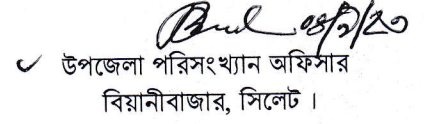 ০৪/১/২০
উপজেলা পরিসংখ্যান অফিসার
বিয়ানীবাজার, সিলেট ।